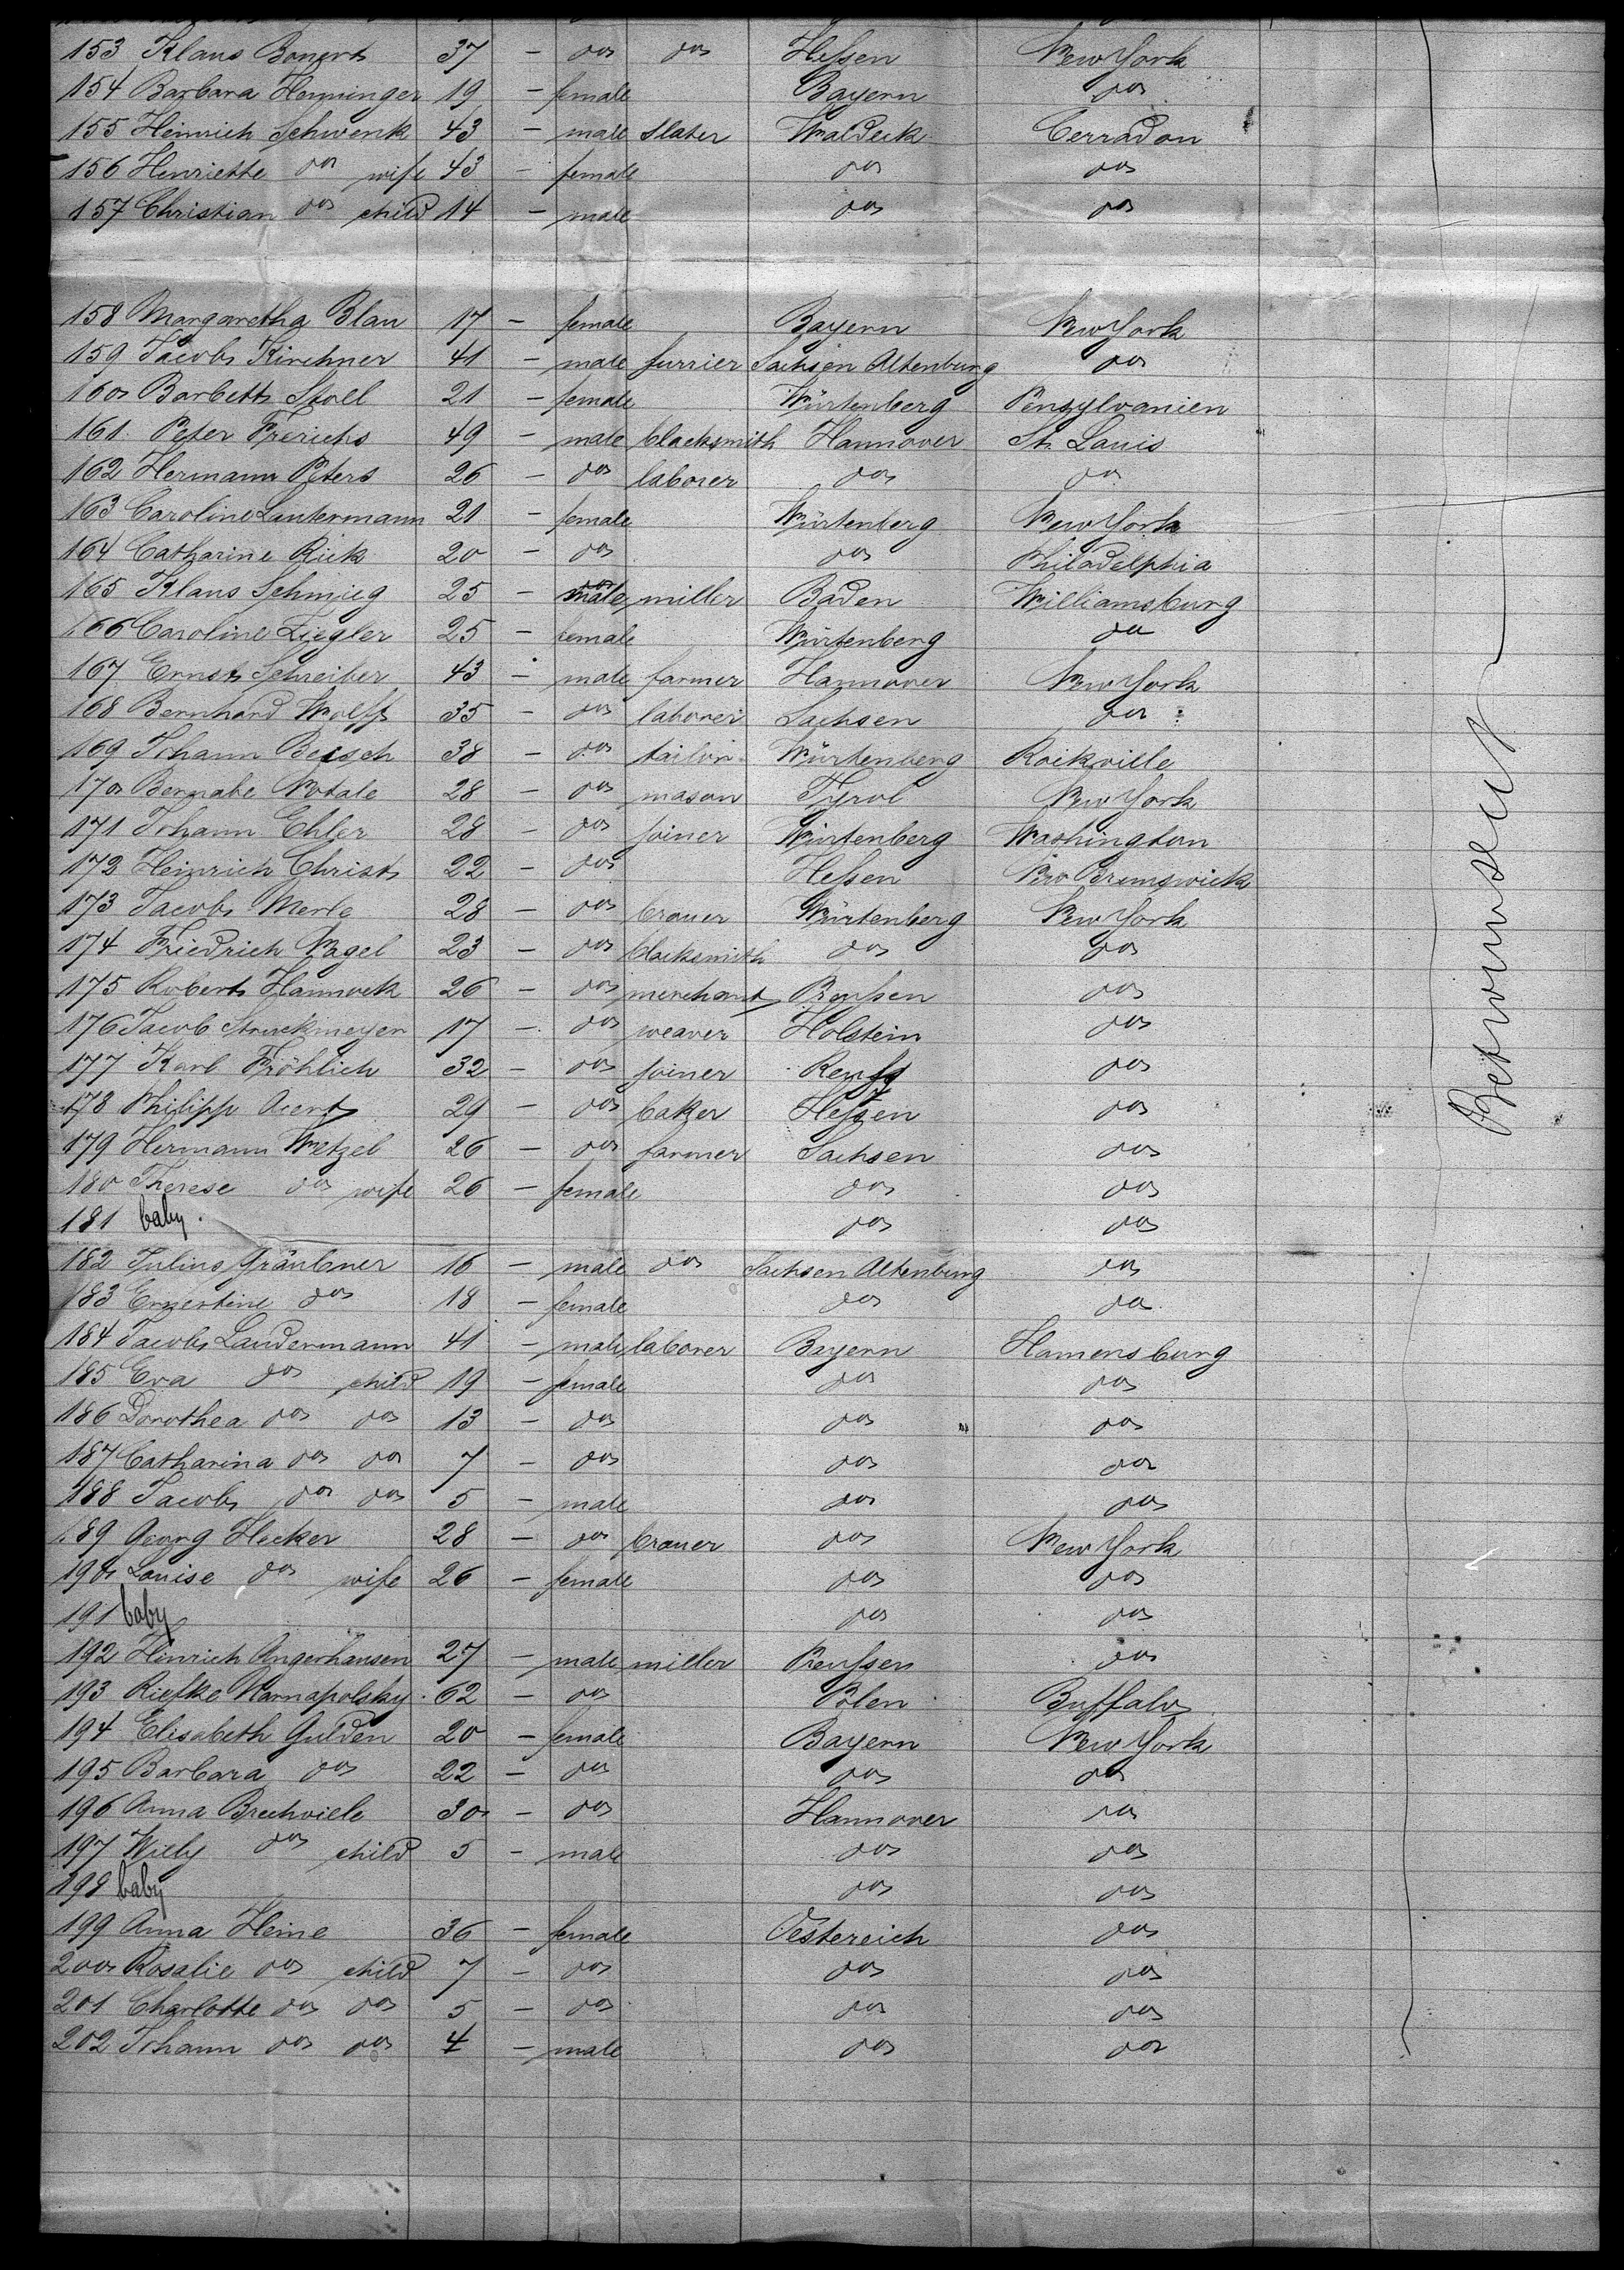 153 Klaus Bonert 37 - do do Hessen New York
154 Barbara Henninger 19 - female Bayern do
155 Heinrich Schwenk 43 - male slater Waldeck Cerradon
156 Henriette do wife 43 - female do do
157 Christian do child 14 - male do do
158 Margaretha Blau 17 - female Bayern New York
159 Jacob Kirchner 41 - male furrier Sachsen Altenburg do
160 Barbett Stoll 21 - female Würtenberg Pensylvanien
161 Peter Frerichs 49 - male blacksmith Hannover St. Louis
162 Hermann Peters 26 - do laborer do do
163 Caroline Lautermann 21 - female Würtenberg New York
164 Catharine Rick 20 - do do Philadelphia
165 Klaus Schmieg 25 - male miller Baden Williamsburg
166 Caroline Ziegler 25 - female Würtenberg do
167 Ernst Schreiber 43 - male farmer Hannover New York
168 Bernhard Wolff 35 - do laborer Sachsen do
169 Johann Beisch 38 - do tailor Würtenberg Rockville
170 Bernabe Notale 28 - do mason Tyrol New York
171 Johann Ehler 28 - do joiner Würtenberg Washington
172 Heinrich Christ 22 - do Hessen New Brunswick
173 Jacob Merle 28 - do brauer Würtenberg New York
174 Friedrich Nagel 23 - do blacksmith do do
175 Robert Hannock 26 - do merchant Preussen do
176 Jacob Struckmeyer 17 - do weaver Holstein do
177 Karl Fröhlich 32 - do joiner Reuss do
178 Philipp 29 - do baker Hessen do
179 Hermann Wetzel 26 - do farmer Sachsen do
180 Therese do wife 26 - female do do
181 baby do do
182 Julius Gräubner 16 - male do Sachsen Altenburg do
183 Ernestine do 18 - female do do
184 Jacob Laudermann 41 - male laborer Bayern Hamensburg
185 Eva do child 19 - female do do
186 Dorothea do do 13 - do do do
187 Catharina do do 7 - do do do
188 Jacob do do 5 - male do do
189 Georg Hecker 28 - do brauer do New York
190 Louise do wife 26 - female do do
191 baby do do
192 Hinrich Angerhausen 27 - male miller Preussen do
193 Riefke Warnapolsky 62 - do Polen Buffalo
194 Elisabeth Gulden 20 - female Bayern New York
195 Barbara do 22 - do do do
196 Anna Brechviele 30 - do Hannover do
197 Willy do child 5 - male do do
198 baby do do
199 Anna Heine 36 - female Oestereich do
200 Rosalie do child 7 - do do do
201 Charlotte do do 5 - do do do
202 Johann do do 4 - male do do